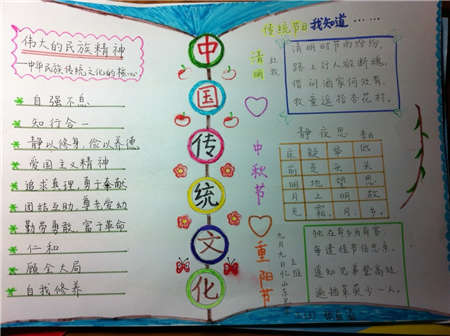 伟大的民族精神
—中华民族传统文化的核心
自强不息
知行合一
静以修身,俭以养德
爱国主义精神
追求真理,勇于奉献
团结互助,尊老爱幼
勤劳勇敢,富于革命
仁和
顾全大局
自我修养
中国传统文化
传统节日我知道……
清明
杜牧
清明时节雨纷纷,
路上行人欲断魂。
借问酒家何处有,
牧童遥指杏花村。
中秋节
静夜思
床疑举低
前是头头
明地望思
月上明故
光霜月乡
重阳节
九月九日忆山东兄
王维
独在异乡为异客,
每逢佳节倍思亲。
遥知兄弟登高处,
遍插茱萸少一人。